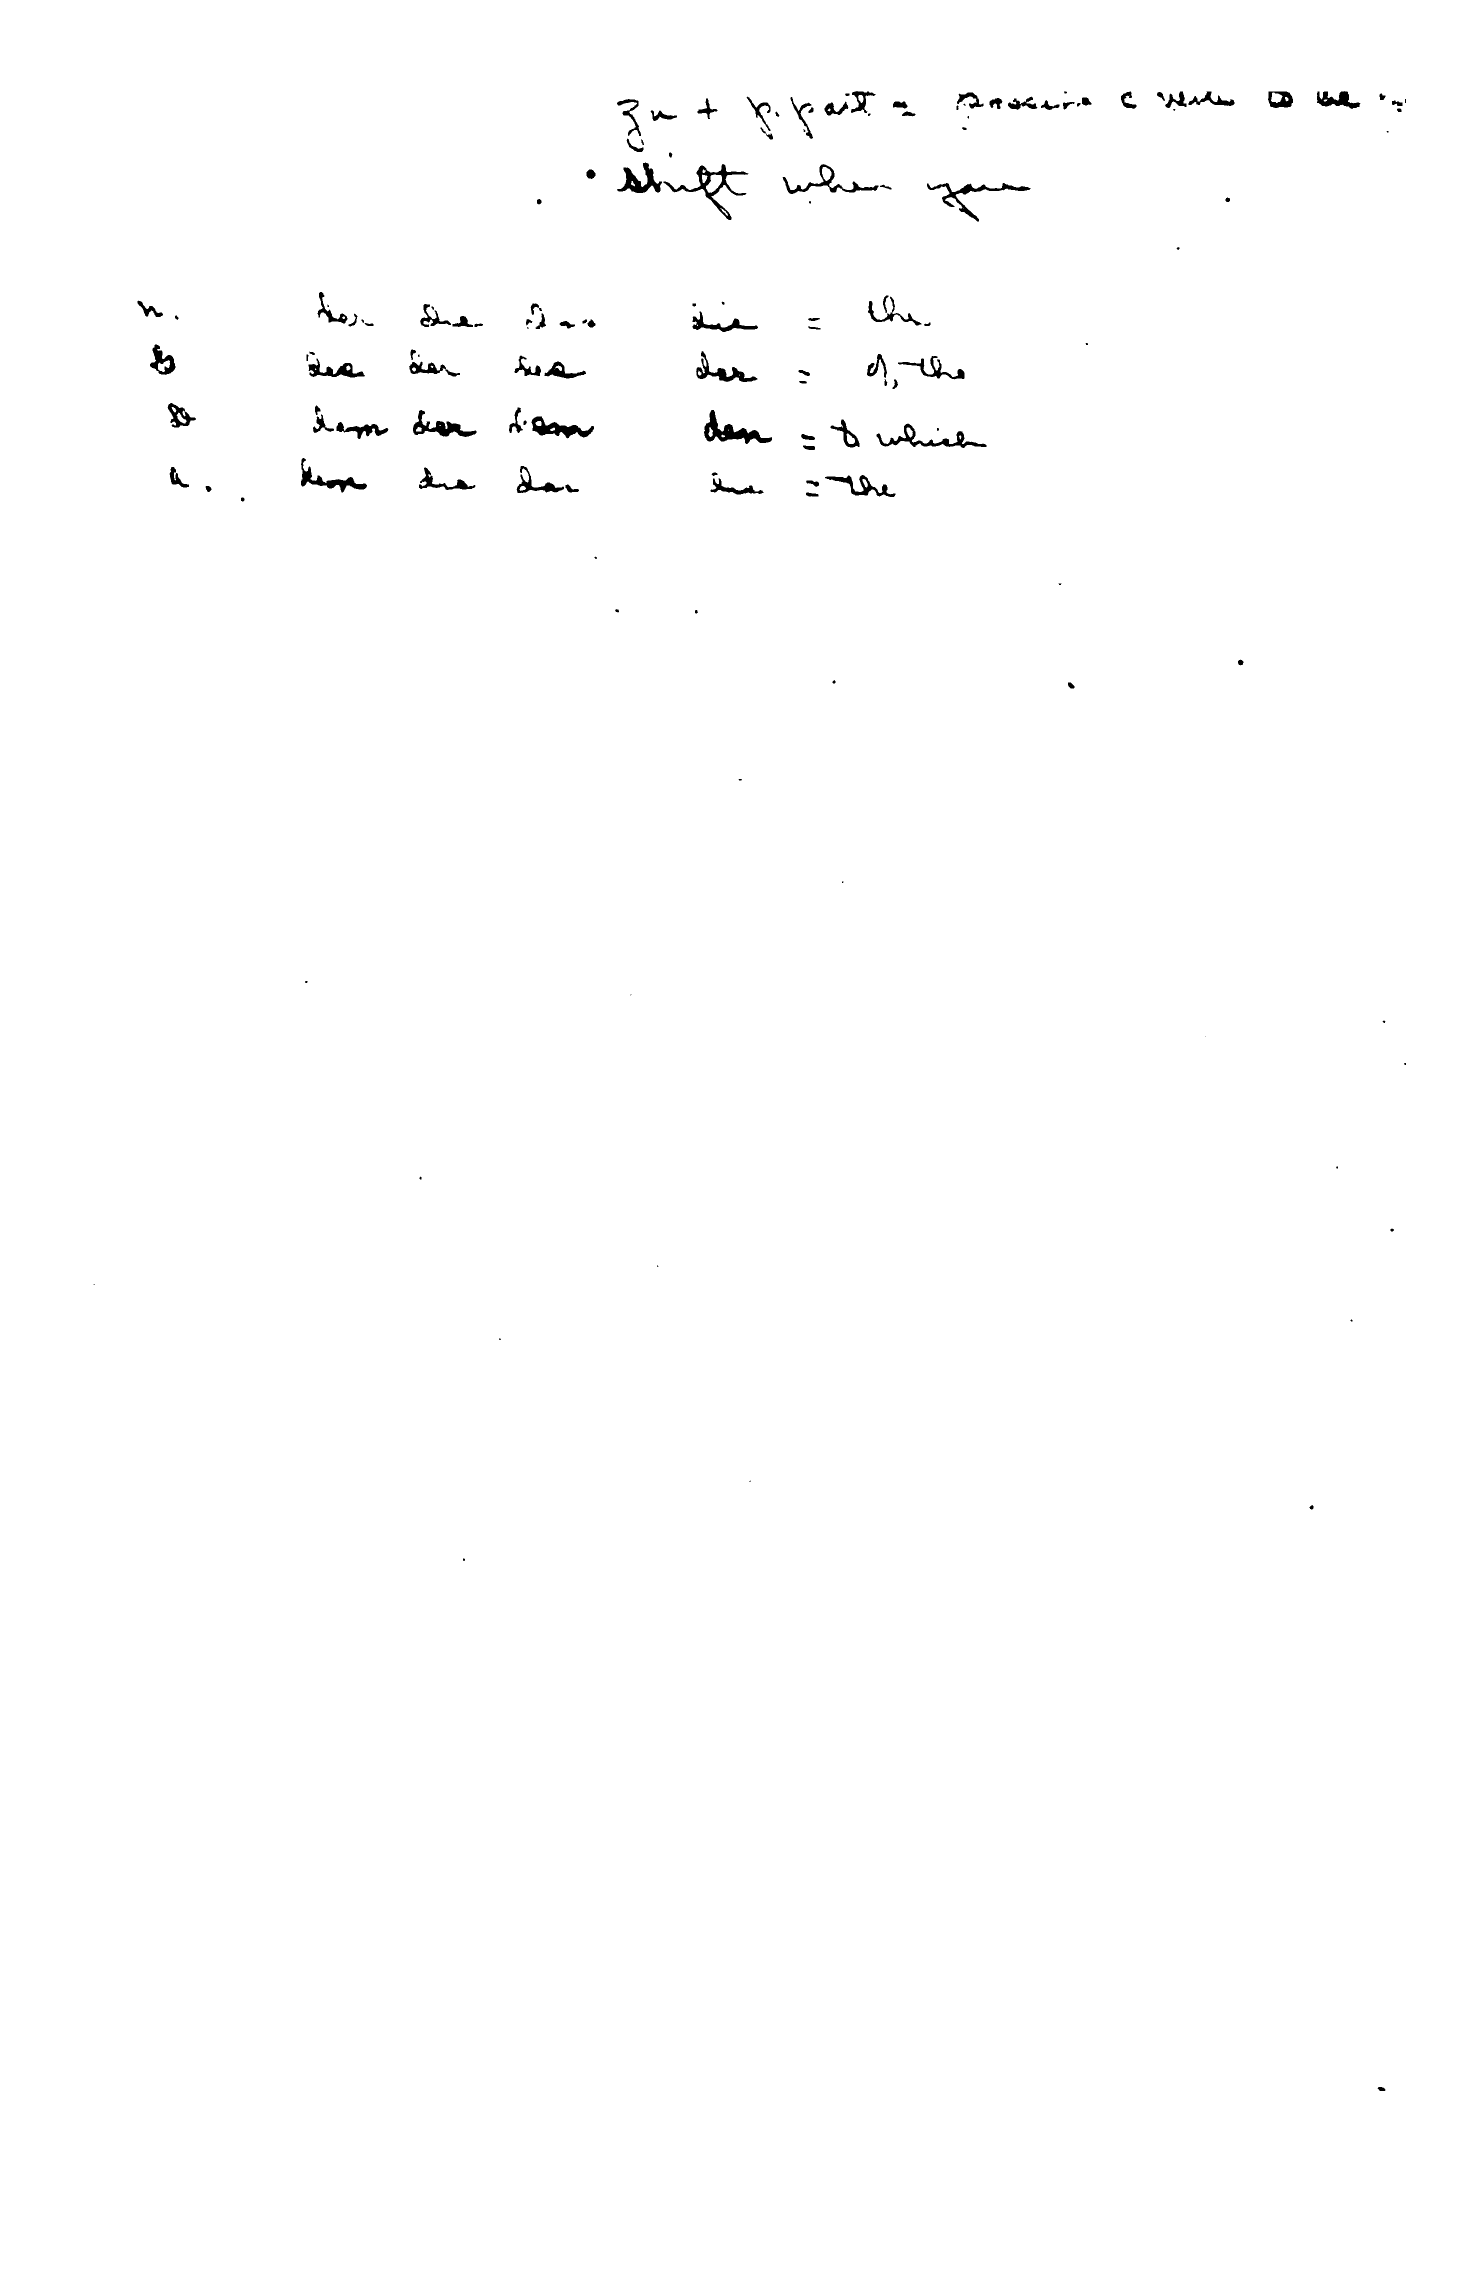 zu + p. part = c to be
shift when you
n. der die das die = the
G des der des der = of the
D dem der dem den = to which
a. den die das die = the